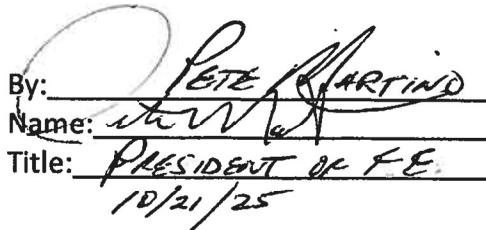 By: PETE MARTINO
Name:
Title: PRESIDENT OF FE
10/21/25